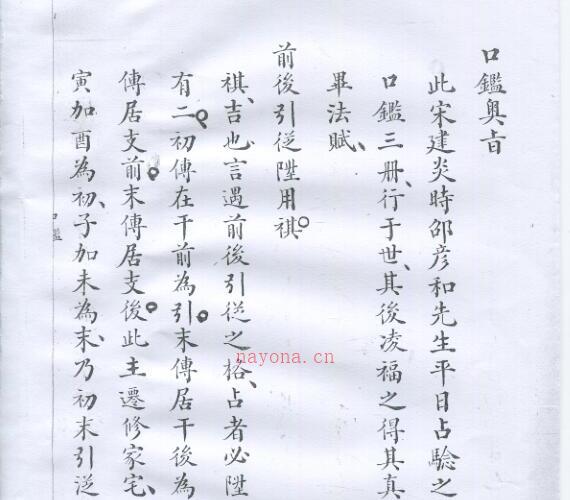 口鑑奥旨
此宋建炎時邵彦和先生平日占驗之
口鑑三册、行于世、其後凌福之得其真
畢法賦、
前後引從陞用祺。
祺、吉也、言遇前後引從之格、占者必陞
有二。初傳在干前為引。末傳居干後為
傳居支前。末傳居支後。此主遷修家宅、
寅加酉為初、子加未為末、乃初末引從
口鑑
nayona.cn